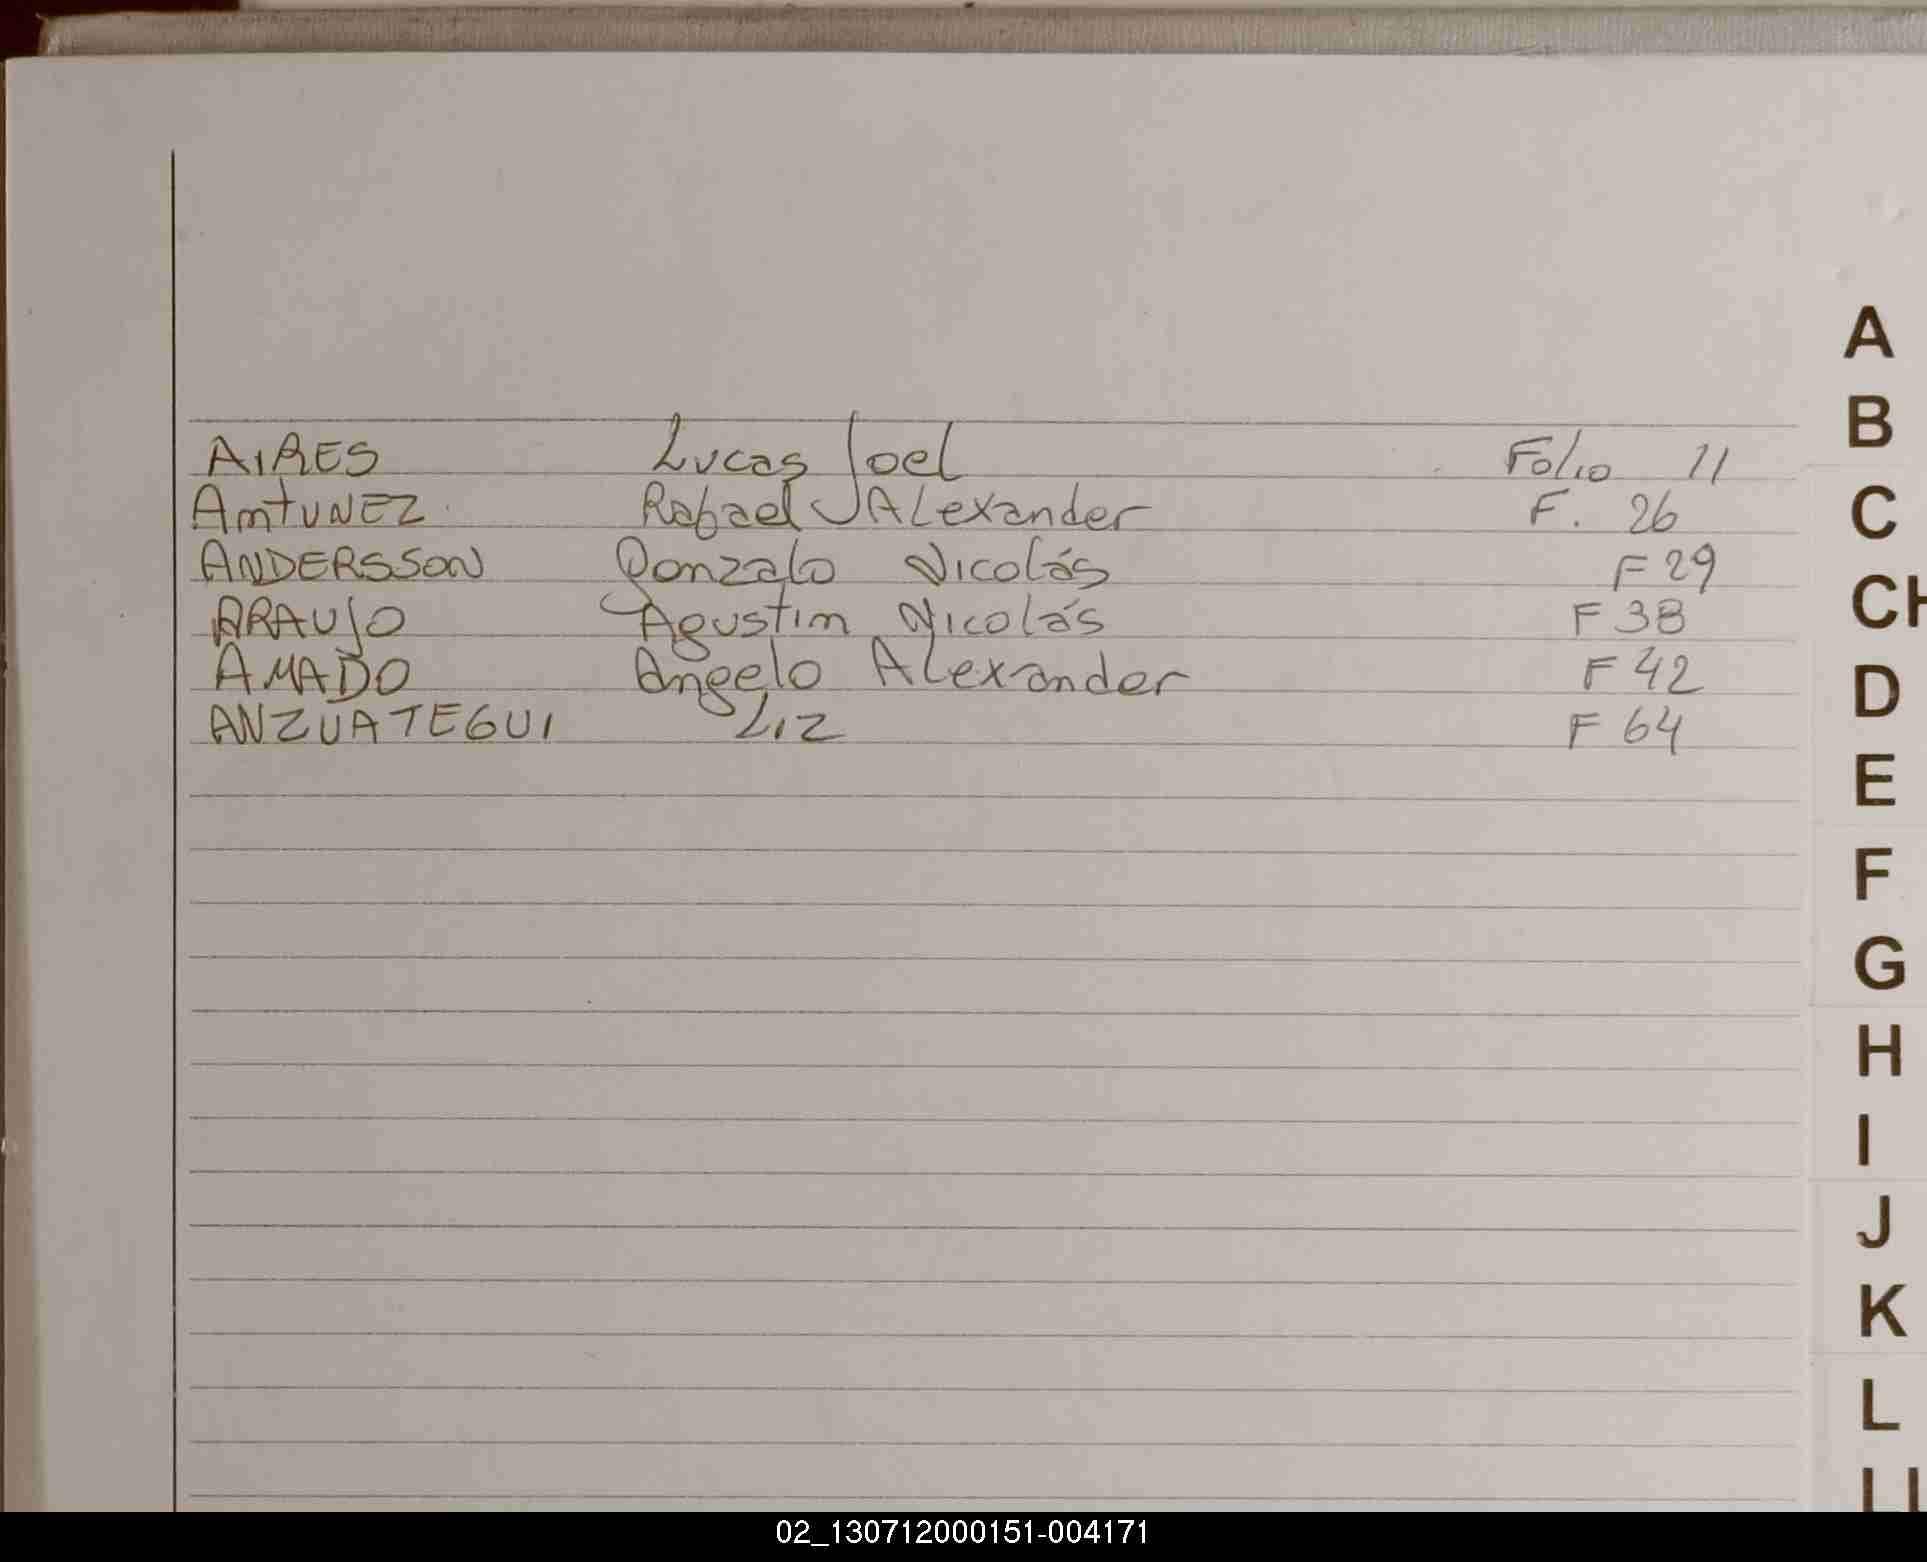 AIRES Lucas Joel Folio 11
AmtUNEZ Rafael Alexander F. 26
ANDERSSON Gonzalo Nicolás F 29
ARAUJO Agustin Nicolás F 38
AMADO Angelo Alexander F 42
ANZUATEGUI Liz F 64
A
B
C
CH
D
E
F
G
H
I
J
K
L
LL
02_130712000151-004171